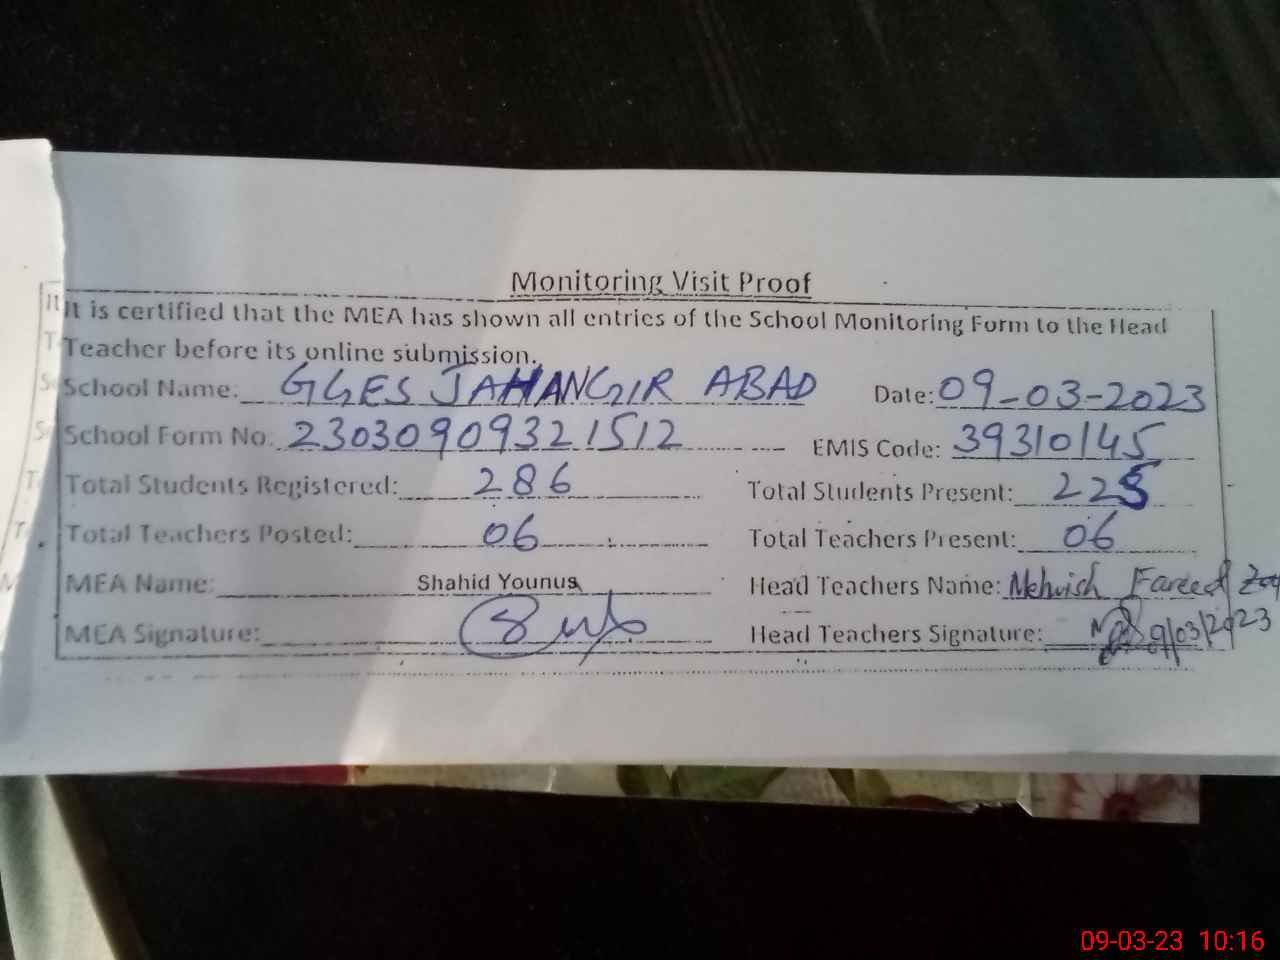 Monitoring Visit Proof
It is certified that the MEA has shown all entries of the School Monitoring Form to the Head
Teacher before its online submission.
School Name: GGES JAHANGIR ABAD Date: 09-03-2023
School Form No. 23030909321512 EMIS Code: 39310145
Total Students Registered: 286 Total Students Present: 225
Total Teachers Posted: 06 Total Teachers Present: 06
MEA Name: Shahid Younus Head Teachers Name: Mehwish Fareed
MEA Signature: Head Teachers Signature: 9/03/2023
09-03-23 10:16